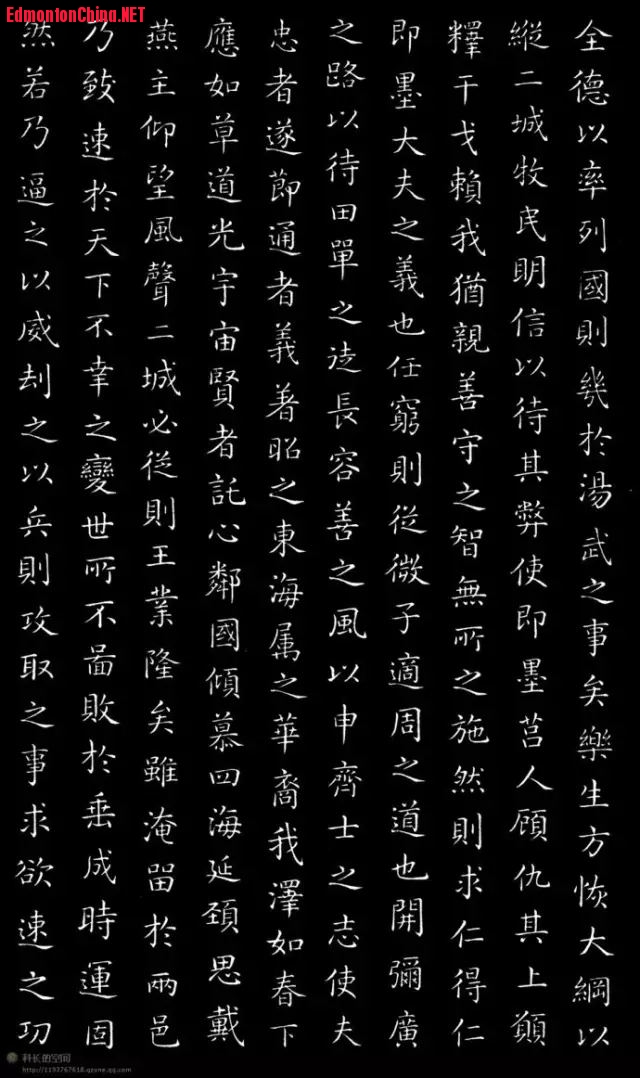 EdmontonChina.NET
全德以率列國則幾於湯武之事矣樂生方恢大綱以
縱二城牧民明信以待其弊使即墨莒人顧仇其上願
釋干戈賴我猶親善守之智無所之施然則求仁得仁
即墨大夫之義也任窮則從微子適周之道也開彌廣
之路以待田單之徒長容善之風以申齊士之志使夫
忠者遂節通者義著昭之東海属之華裔我澤如春下
應如草道光宇宙賢者託心鄰國傾慕四海延頚思戴
燕主仰望風聲二城必從則王業隆矣雖淹留於兩邑
乃致速於天下不幸之變世所不啚敗於垂成時運固
然若乃逼之以威刼之以兵則攻取之事求欲速之功
科长的空间
http://1193767618.qzone.qq.com